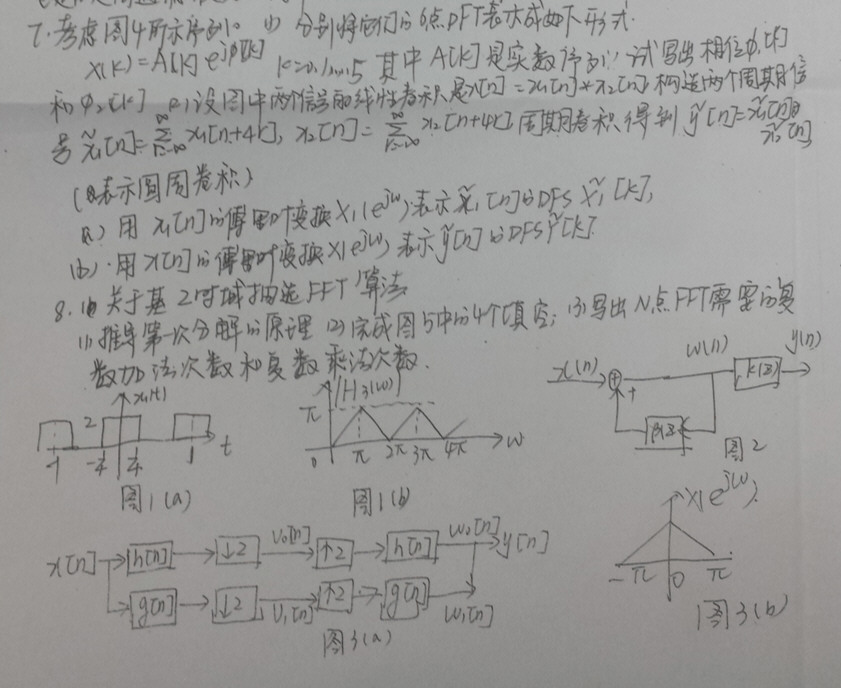 7.考虑图4所示序列。(1) 分别将它们的6点DFT表示成如下形式.
X(k)=A[k]e^{jφ[k]} k=0,1,...,5 其中A[k]是实数序列,试写出相位φ₁[k]
和φ₂[k] (2)设图中两个信号的线性卷积是x[n]=x₁[n]*x₂[n],构造两个周期信
号x̃₁[n]=∑_{r=-∞}^{∞}x₁[n+4r], x₂[n]=∑_{r=-∞}^{∞}x₂[n+4r],周期卷积得到ỹ[n]=x̃₁[n]⊗
x̃₂[n]
(⊗表示圆周卷积)
(a) 用x₁[n]的傅里叶变换X₁(e^{jω})表示x̃₁[n]的DFS X̃₁[k],
(b).用x[n]的傅里叶变换X(e^{jω})表示ỹ[n]的DFS Ỹ[k].
8. 关于基2时域抽选FFT算法
(1)推导第一次分解的原理 (2)完成图5中的4个填空; (3)写出N点FFT需要的复
数加法次数和复数乘法次数.
x(n) + w(n) k(z) y(n)
图2
2 x₁(t) -1 -1/4 1/4 1 t
图1(a)
|H₃(ω)| π 0 π 2π 3π 4π ω
图1(b)
x[n] h[n] ↓2 v₀[n] ↑2 h[n] w₀[n] y[n]
g[n] ↓2 v₁[n] ↑2 g[n] w₁[n]
图3(a)
X(e^{jω}) -π 0 π
图3(b)